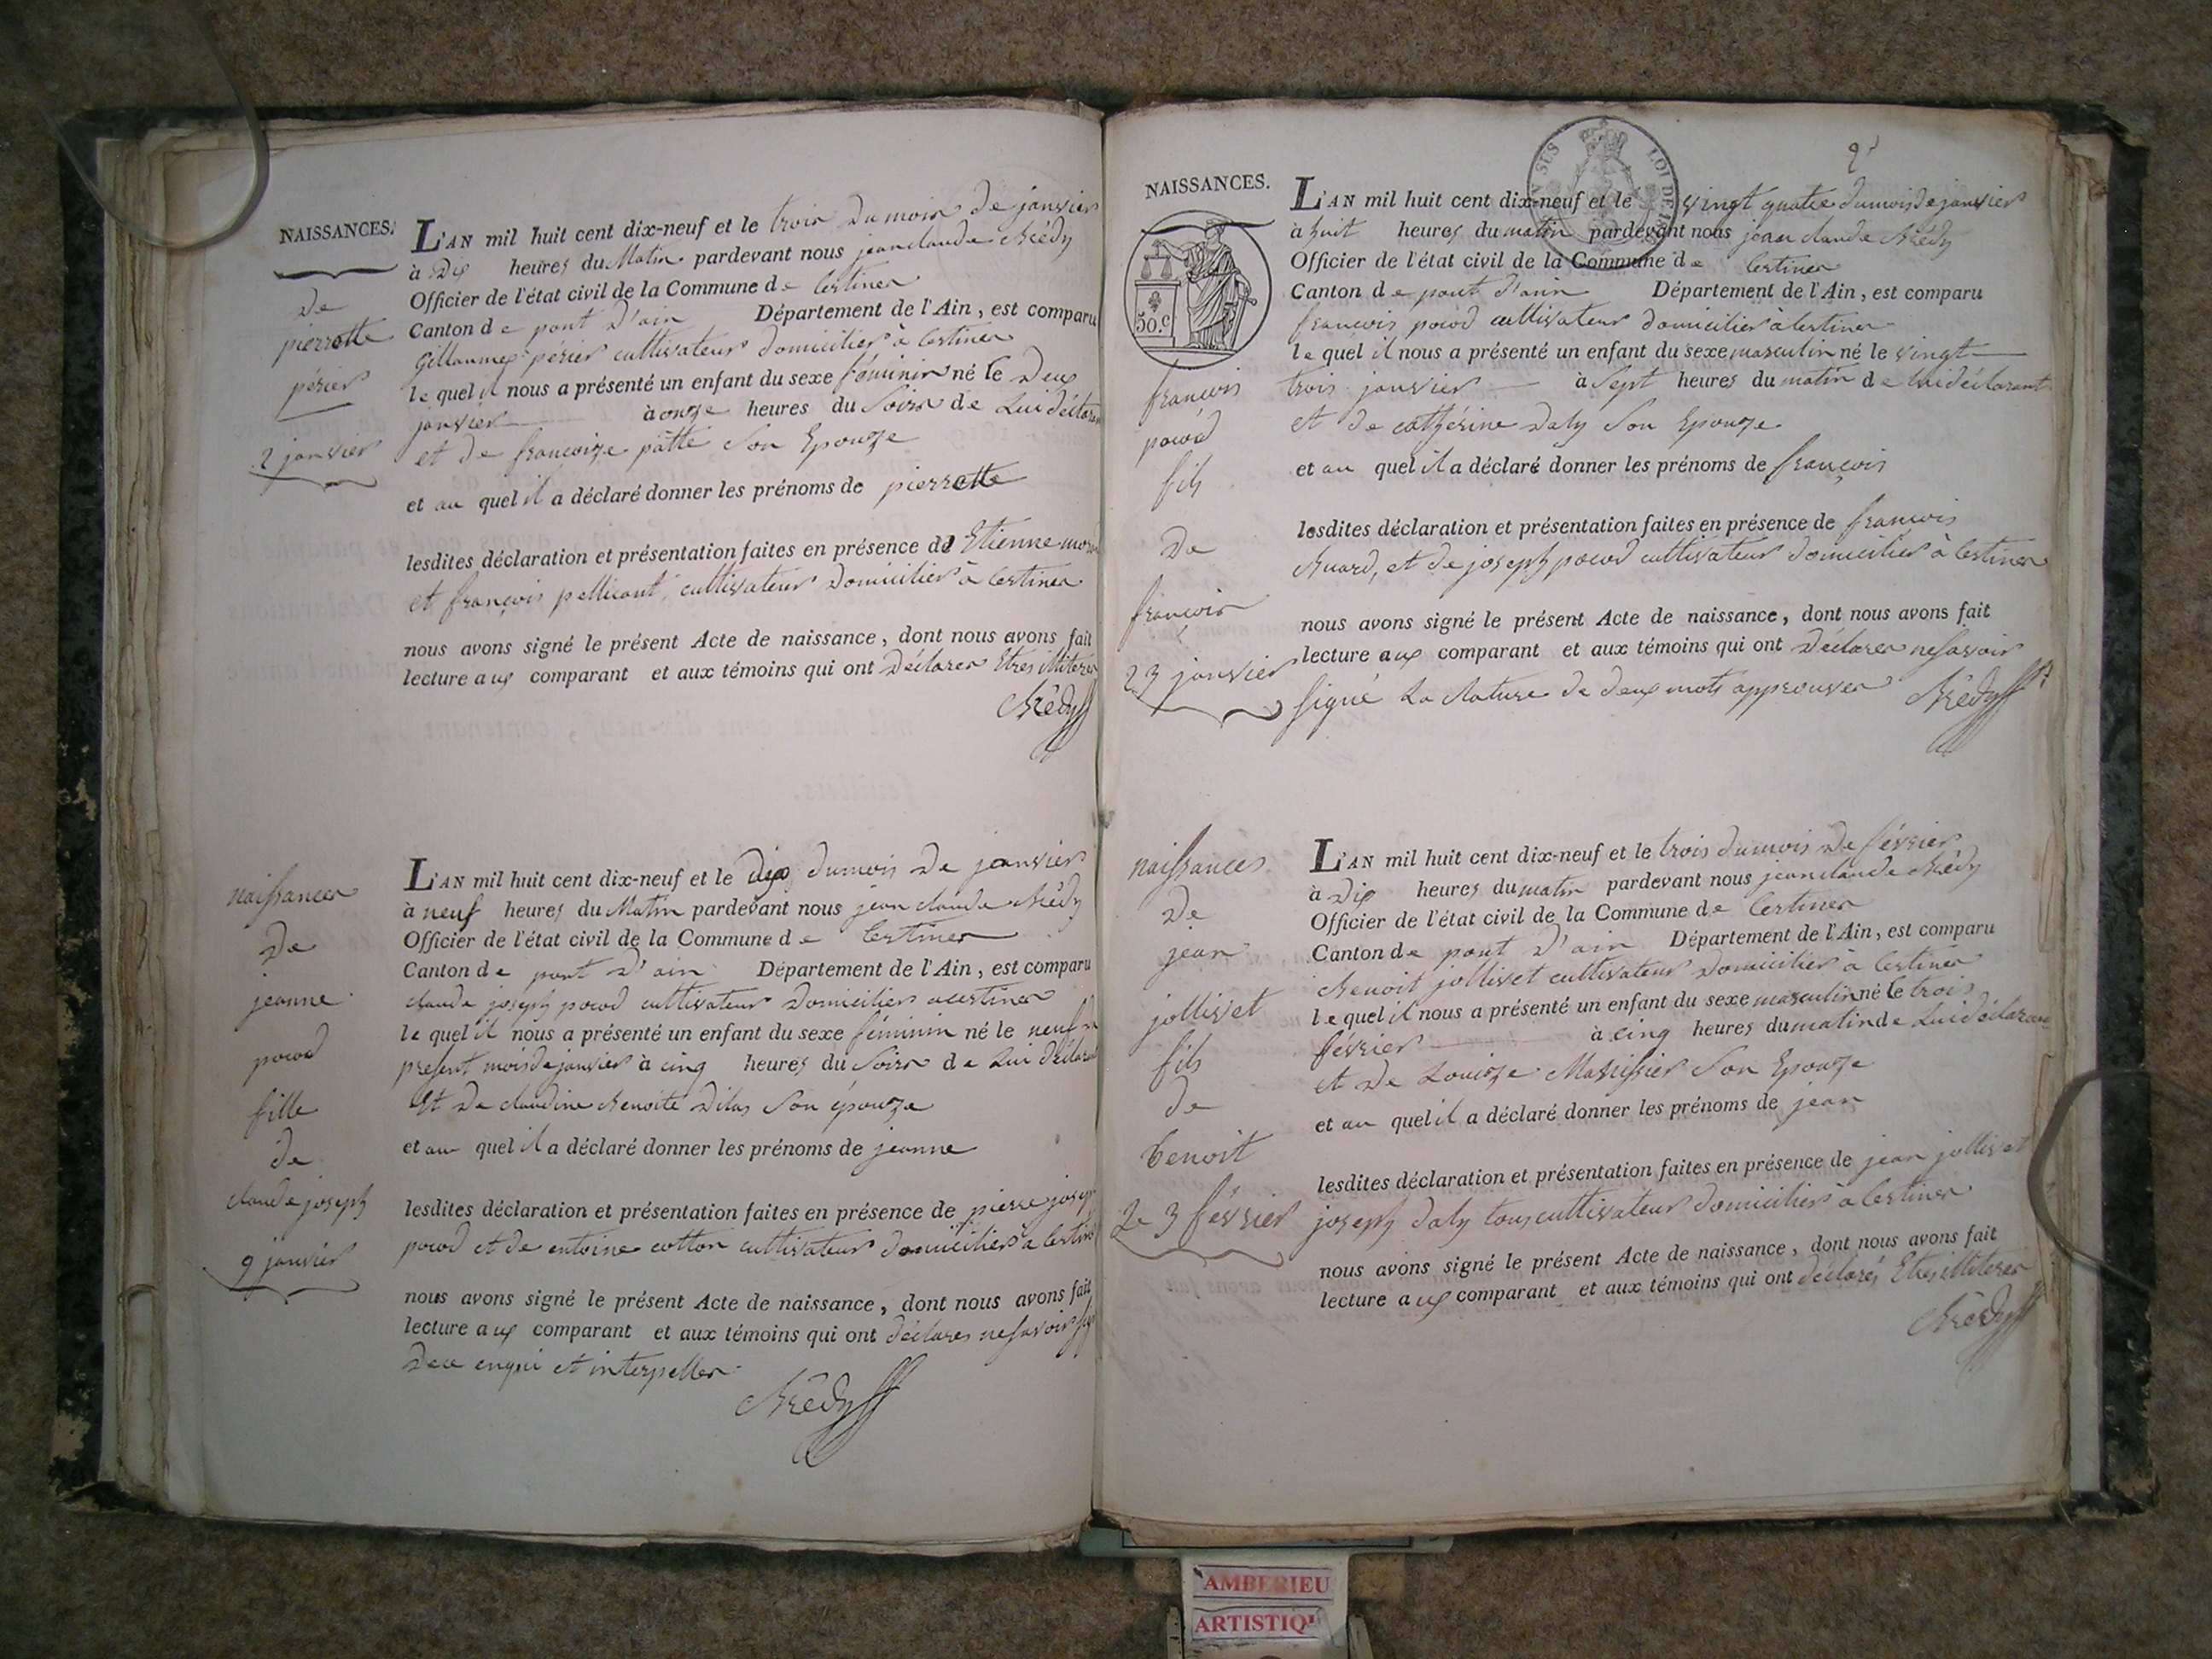 NAISSANCES.
De
pierrotte
périer
2 janvier
L'AN mil huit cent dix-neuf et le trois du mois de janvier
à Dix heures du Matin pardevant nous jean claude
Officier de l'état civil de la Commune de Certines
Canton de pont d'ain Département de l'Ain, est comparu
Gillaumes périer cultivateur domicilier à Certines
le quel il nous a présenté un enfant du sexe féminin né le Deux
janvier à onze heures du Soir de Lui déclarant
et de françoize patte Son Epouze
et au quel il a déclaré donner les prénoms de pierrotte
lesdites déclaration et présentation faites en présence de Etienne
et françois pellicant cultivateur Domicilier à Certines
nous avons signé le présent Acte de naissance, dont nous avons fait
lecture aux comparant et aux témoins qui ont Déclarer Etres
naissances
De
jeanne
pocod
fille
de
claude joseph
9 janvier
L'AN mil huit cent dix-neuf et le dix du mois de janvier
à neuf heures du Matin pardevant nous jean claude
Officier de l'état civil de la Commune de Certines
Canton de pont d'ain Département de l'Ain, est comparu
claude joseph pocod cultivateur Domicilier a certines
le quel il nous a présenté un enfant du sexe féminin né le neuf
present mois de janvier à cinq heures du Soir de Lui Déclarant
Et De claudine Benoite Son épouze
et au quel il a déclaré donner les prénoms de jeanne
lesdites déclaration et présentation faites en présence de pierre joseph
pocod et de entoine cotton cultivateur domicilier a Certines
nous avons signé le présent Acte de naissance, dont nous avons fait
lecture aux comparant et aux témoins qui ont déclarer ne savoir
De ce enqui et interpeller
NAISSANCES.
50.c
SUS LOI DE
françois
pocod
fils
De
françois
23 janvier
L'AN mil huit cent dix-neuf et le vingt quatre du mois de janvier
à huit heures du matin pardevant nous jean claude
Officier de l'état civil de la Commune de Certines
Canton de pont d'ain Département de l'Ain, est comparu
françois pocod cultivateur domicilier à Certines
le quel il nous a présenté un enfant du sexe masculin né le vingt
trois janvier à Sept heures du matin de lui déclarant
et de cathérine Daly Son Epouze
et au quel il a déclaré donner les prénoms de françois
lesdites déclaration et présentation faites en présence de françois
et de joseph pocod cultivateur domicilier à Certines
nous avons signé le présent Acte de naissance, dont nous avons fait
lecture aux comparant et aux témoins qui ont Déclarer ne savoir
Signé La Rature de deux mots approuver
naissances
De
jean
jollivet
fils
de
benoit
Le 3 février
L'AN mil huit cent dix-neuf et le trois du mois de février
à Dix heures du matin pardevant nous jean claude
Officier de l'état civil de la Commune de Certines
Canton de pont d'ain Département de l'Ain, est comparu
Benoit jollivet cultivateur Domicilier à Certines
le quel il nous a présenté un enfant du sexe masculin né le trois
février à cinq heures du matin de Lui déclarant
et De Louize Son Epouze
et au quel il a déclaré donner les prénoms de jean
lesdites déclaration et présentation faites en présence de jean jollivet
joseph daly tous cultivateur domicilier à Certines
nous avons signé le présent Acte de naissance, dont nous avons fait
lecture aux comparant et aux témoins qui ont déclarés Etres
AMBERIEU
ARTISTIQU